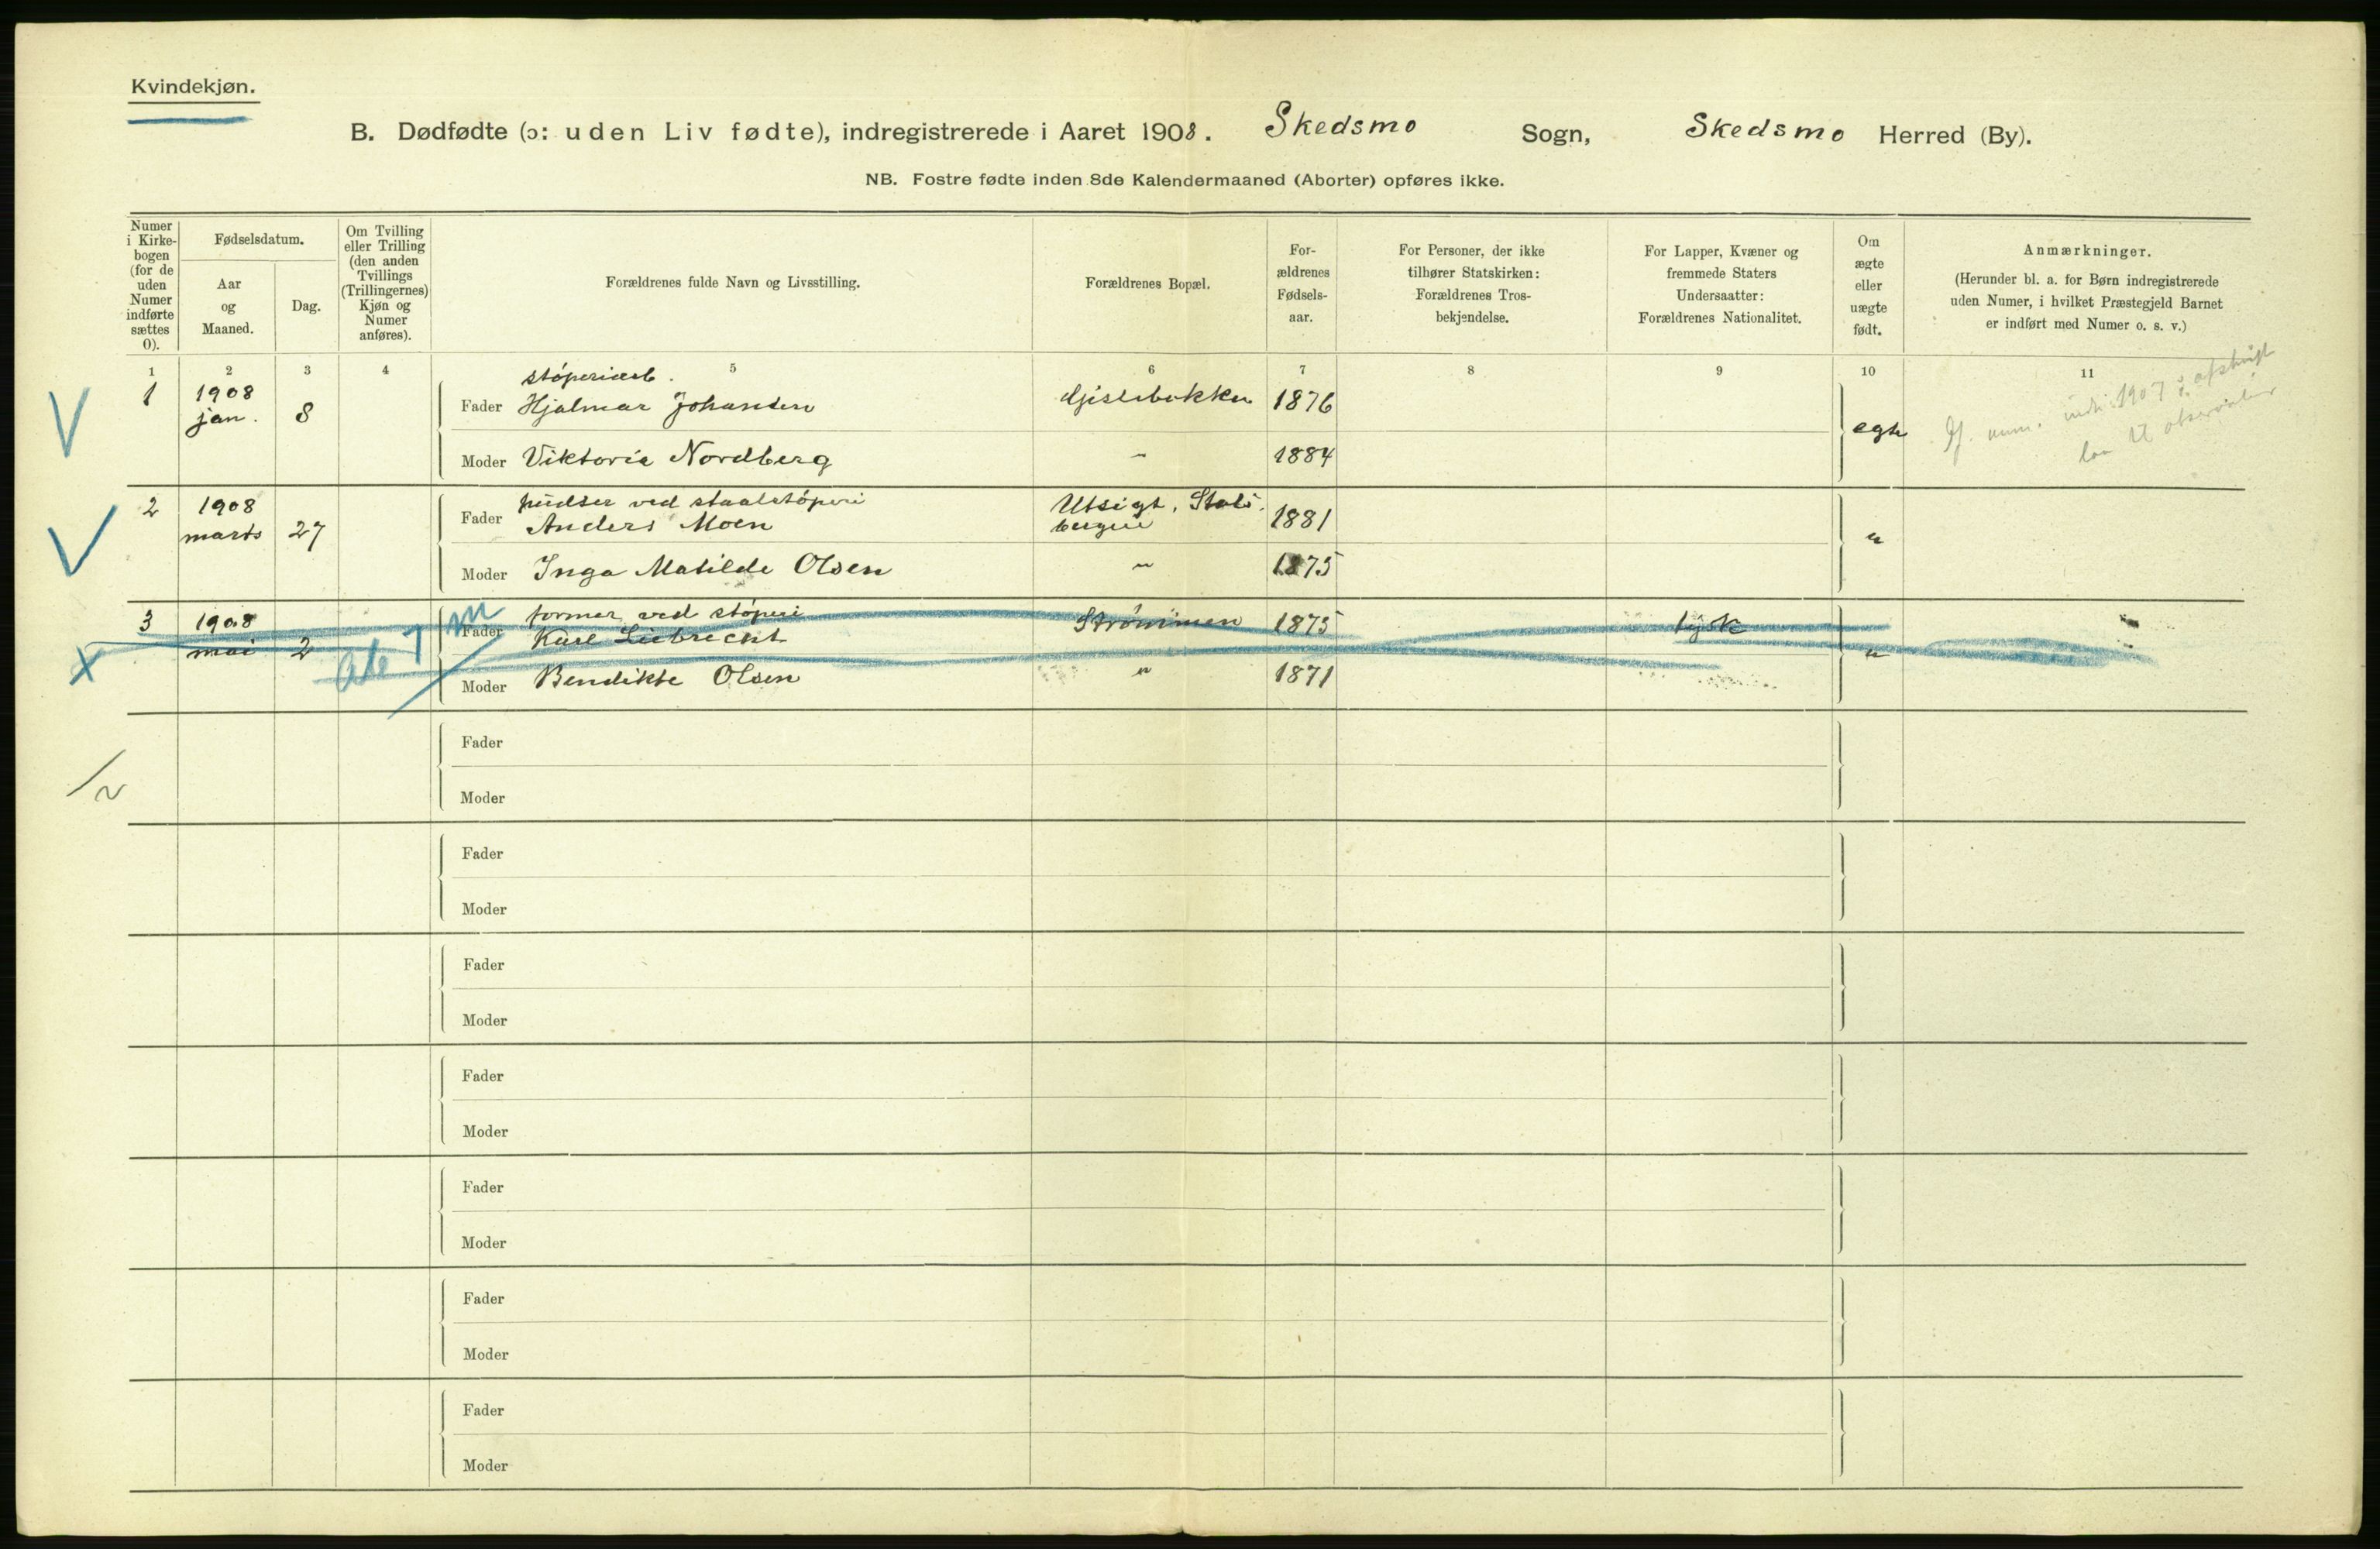 Kvindekjøn.
B. Dødfødte (ɔ: uden Liv fødte), indregistrerede i Aaret 1908. Skedsmo Sogn, Skedsmo Herred (By).
NB. Fostre fødte inden 8de Kalendermaaned (Aborter) opføres ikke.
Numer i Kirke-bogen (for de uden Numer indførte sættes 0).
Fødselsdatum.
Aar og Maaned.
Dag.
Om Tvilling eller Trilling (den anden Tvillings (Trillingernes) Kjøn og Numer anføres).
Forældrenes fulde Navn og Livsstilling.
Forældrenes Bopæl.
For-ældrenes Fødsels-aar.
For Personer, der ikke tilhører Statskirken: Forældrenes Tros-bekjendelse.
For Lapper, Kvæner og fremmede Staters Undersaatter: Forældrenes Nationalitet.
Om ægte eller uægte født.
Anmærkninger.
(Herunder bl. a. for Børn indregistrerede uden Numer, i hvilket Præstegjeld Barnet er indført med Numer o. s. v.)
1 2 3 4 5 6 7 8 9 10 11
støperiarb.
1 1908 jan. 8 Fader Hjalmar Johansen 1876 egte
Moder Viktoria Nordberg " 1884
2 1908 marts 27 pudser ved staalstøperi
Fader Anders Moen Utsigt, Stals-bergene 1881 "
Moder Inga Matilde Olsen " 1875
3 1908 mai 2 former ved støperi
Fader Karl Liebrecht Strømmen 1875 tysk "
Moder Bendikte Olsen " 1871
Fader
Moder
Fader
Moder
Fader
Moder
Fader
Moder
Fader
Moder
Fader
Moder
Fader
Moder